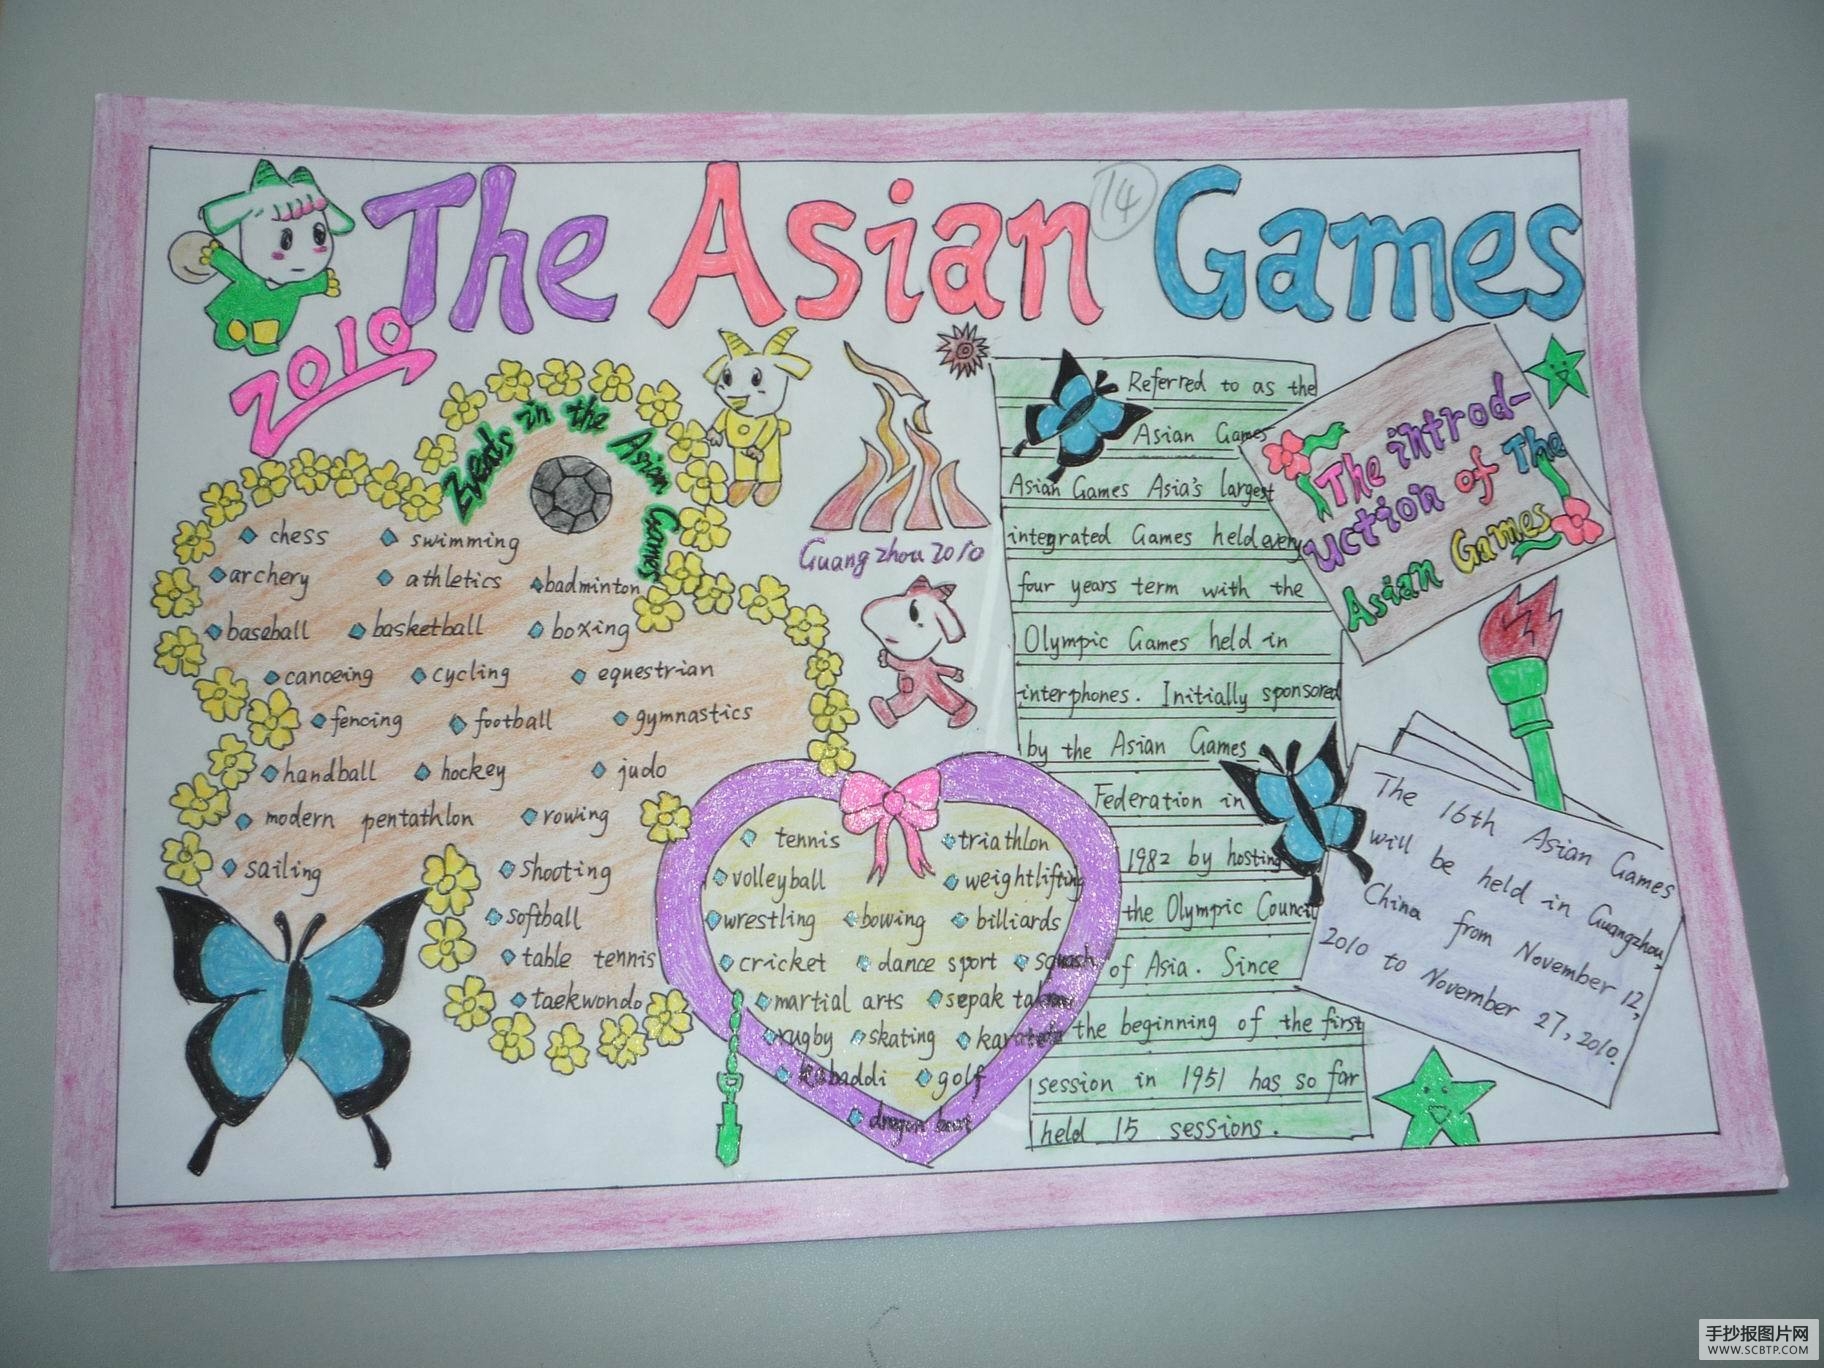 The Asian Games
14
2010
Events in the Asian Games
chess swimming
archery athletics badminton
baseball basketball boxing
canoeing cycling equestrian
fencing football gymnastics
handball hockey judo
modern pentathlon rowing
sailing shooting
softball
table tennis
taekwondo
Guangzhou 2010
tennis triathlon
volleyball weightlifting
wrestling bowing billiards
cricket dance sport squash
martial arts sepak
rugby skating karate
kabaddi golf
dragon boat
Referred to as the
Asian Games
Asian Games Asia's largest
integrated Games held every
four years term with the
Olympic Games held in
interphones. Initially sponsored
by the Asian Games
Federation in
1982 by hosting
the Olympic Council
of Asia. Since
the beginning of the first
session in 1951 has so far
held 15 sessions.
The introd-
uction of The
Asian Games
The 16th Asian Games
will be held in Guangzhou,
China from November 12,
2010 to November 27, 2010.
手抄报图片网
WWW.SCBTP.COM